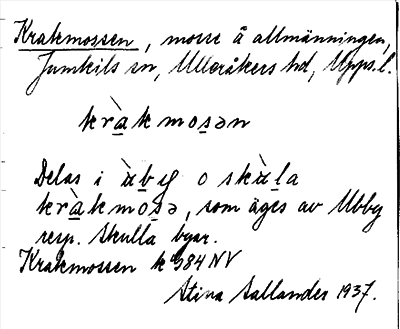 Krakmossen, mosse å allmänningen,
Jumkils sn, Ulleråkers hd, Upps. l.
kràk mosən
Delas i ùby o skàla
kràk mosə, som äges av Ubby
resp. Skulla byar.
Krakmossen k 984 NV
Stina Sallander 1937.